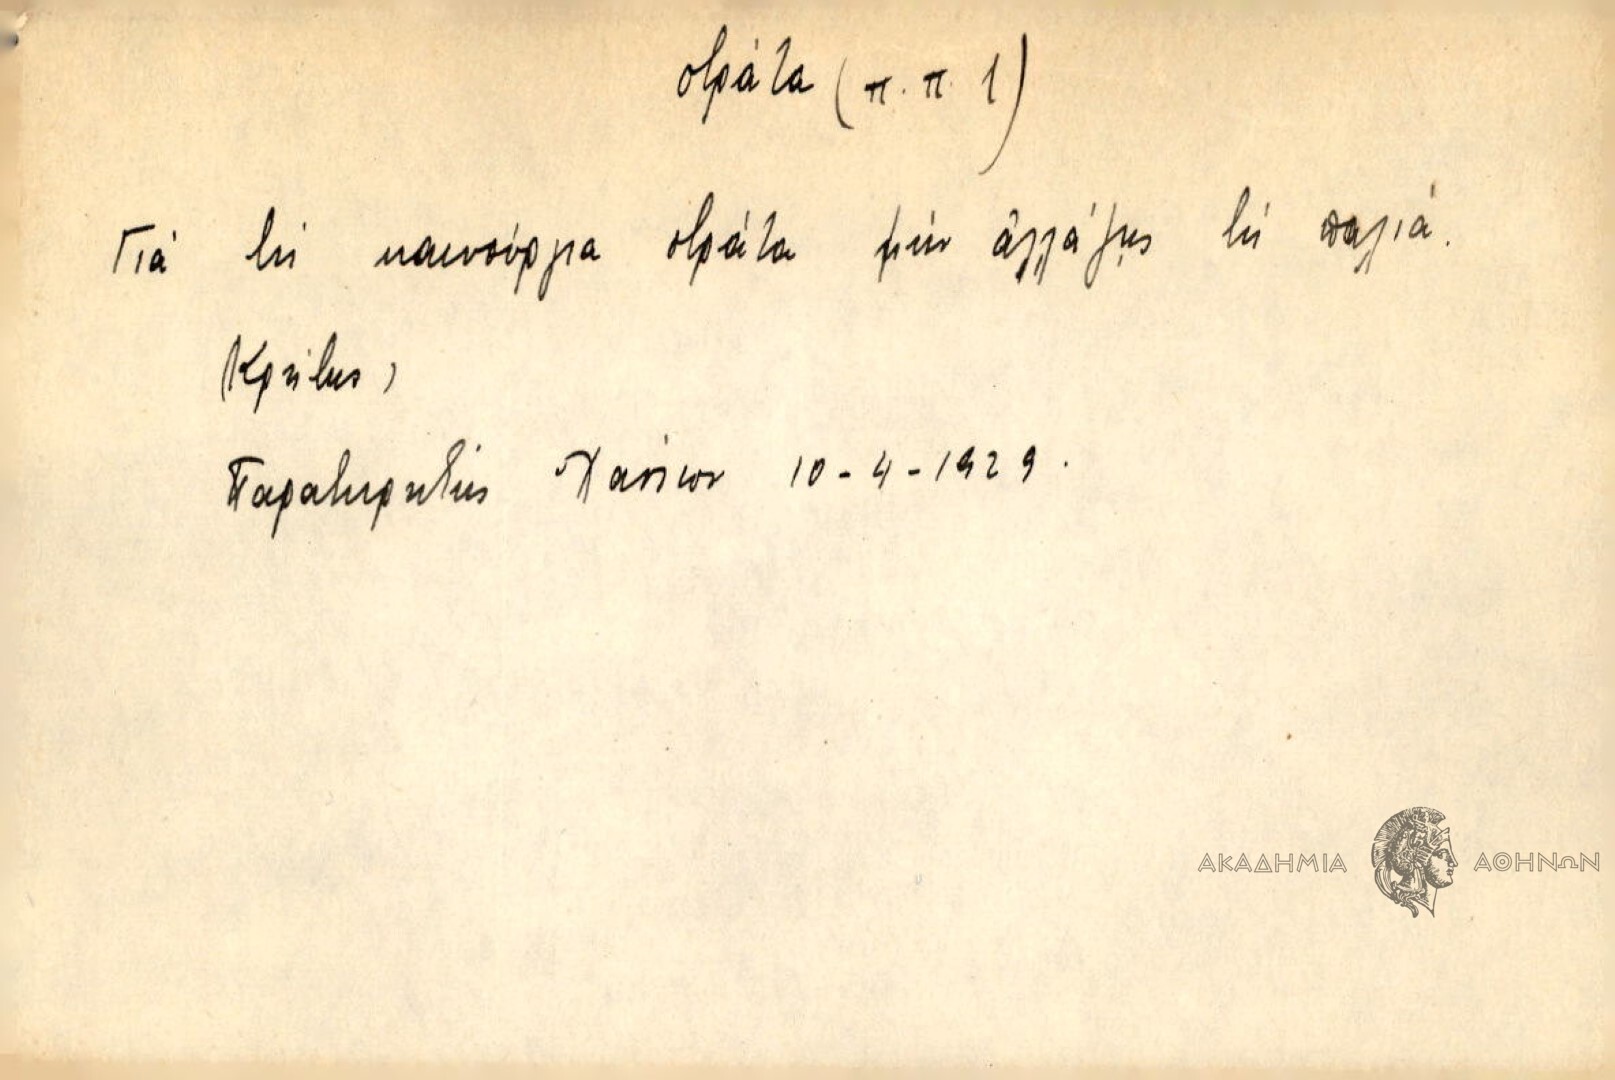 στράτα (π.π. 1)
Γιὰ τὴ καινούργια στράτα μὴν ἀλλάζῃς τὴ παλιά.
Κρήτης,
Παρατηρητὴς Χανίων 10-4-1929.
ΑΚΑΔΗΜΙΑ ΑΘΗΝΩΝ